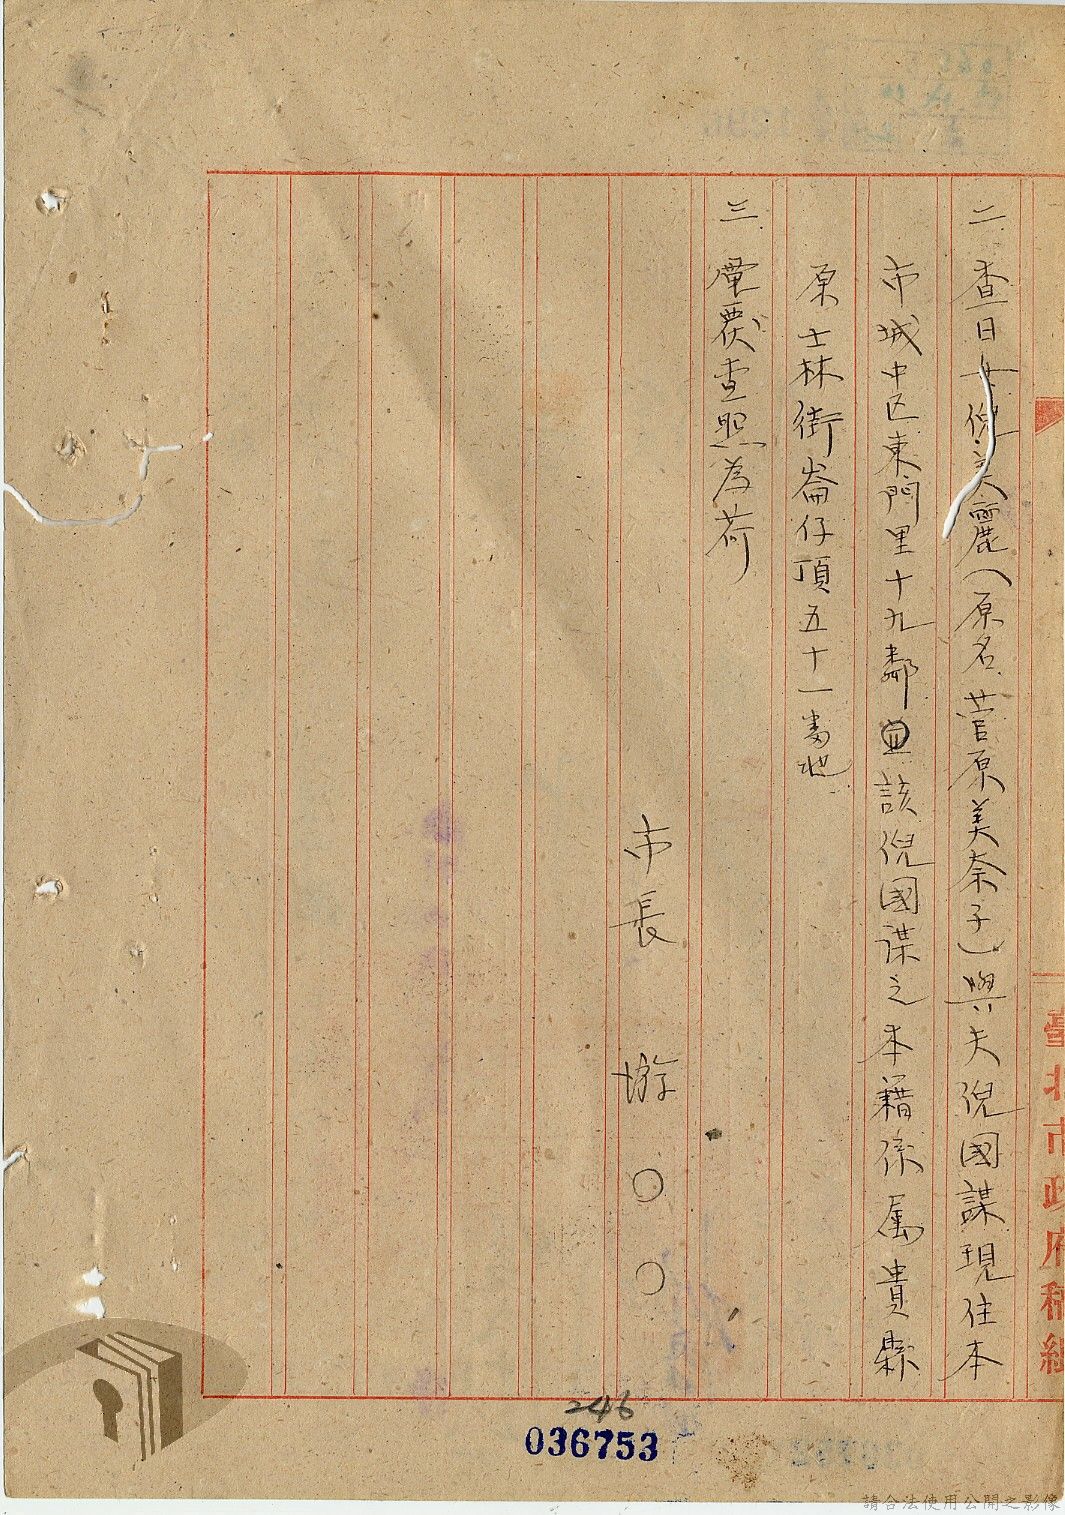 臺北市政府稿紙
二 查日女倪美麗(原名菅原美奈子)與夫倪國謀現住本
市城中区東門里十九鄰 該倪國謀之本籍係属貴縣
原士林街崙仔頂五十一番地
三 電覆查照為荷
市長 游○○
246
036753
請合法使用公開之影像